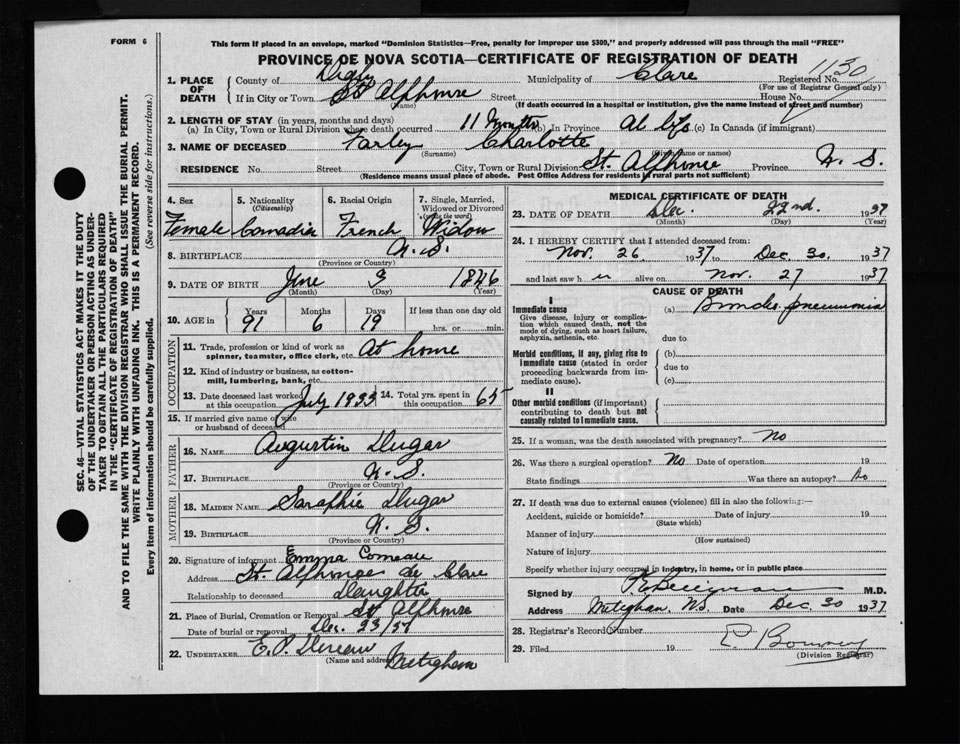 FORM 6
This form if placed in an envelope, marked "Dominion Statistics—Free, penalty for improper use $300," and properly addressed will pass through the mail "FREE"
PROVINCE OF NOVA SCOTIA—CERTIFICATE OF REGISTRATION OF DEATH
1. PLACE OF DEATH County of Digby Municipality of Clare Registered No. 1130
(For use of Registrar General only)
If in City or Town St Alphonse Street House No.
(Name) (If death occurred in a hospital or institution, give the name instead of street and number)
2. LENGTH OF STAY (in years, months and days)
(a) In City, Town or Rural Division where death occurred 11 Months (b) In Province Al life (c) In Canada (if immigrant)
3. NAME OF DECEASED Farley Charlotte
(Surname) (Given name or names)
RESIDENCE No. Street City, Town or Rural Division St. Alphonse Province N. S.
(Residence means usual place of abode. Post Office Address for residents in rural parts not sufficient)
4. Sex 5. Nationality (Citizenship) 6. Racial Origin 7. Single, Married, Widowed or Divorced (write the word)
Female Canadian French Widow
8. BIRTHPLACE N. S.
(Province or Country)
9. DATE OF BIRTH June 3 1846
(Month) (Day) (Year)
10. AGE in Years Months Days If less than one day old
91 6 19 hrs. or min.
OCCUPATION
11. Trade, profession or kind of work as spinner, teamster, office clerk, etc. At home
12. Kind of industry or business, as cotton-mill, lumbering, bank, etc.
13. Date deceased last worked at this occupation July 1933 14. Total yrs. spent in this occupation 65
15. If married give name of wife or husband of deceased
FATHER
16. NAME Augustin Dugas
17. BIRTHPLACE N. S.
(Province or Country)
MOTHER
18. MAIDEN NAME Saraphie Dugas
19. BIRTHPLACE N. S.
(Province or Country)
20. Signature of informant Emma Comeau
Address St. Alphonse de Clare
Relationship to deceased Daughter
21. Place of Burial, Cremation or Removal St Alphonse
Date of burial or removal Dec. 23/37
22. UNDERTAKER E. P. Meteghan
(Name and address)
MEDICAL CERTIFICATE OF DEATH
23. DATE OF DEATH Dec. 22nd. 1937
(Month) (Day) (Year)
24. I HEREBY CERTIFY that I attended deceased from:
Nov. 26 1937 to Dec 30 1937
and last saw her alive on Nov. 27 1937
CAUSE OF DEATH
I
Immediate cause (a) Broncho-pneumonia
Give disease, injury or complication which caused death, not the mode of dying, such as heart failure, asphyxia, asthenia, etc.
due to
Morbid conditions, if any, giving rise to immediate cause (stated in order proceeding backwards from immediate cause).
(b)
due to
(c)
II
Other morbid conditions (if important) contributing to death but not causally related to immediate cause.
25. If a woman, was the death associated with pregnancy? No
26. Was there a surgical operation? No Date of operation 19
State findings Was there an autopsy? No
27. If death was due to external causes (violence) fill in also the following:—
Accident, suicide or homicide? Date of injury 19
(State which)
Manner of injury
(How sustained)
Nature of injury
Specify whether injury occurred in industry, in home, or in public place
Signed by M.D.
Address Meteghan, NS. Date Dec 30 1937
28. Registrar's Record Number
29. Filed 19
(Division Registrar)
SEC. 46—VITAL STATISTICS ACT MAKES IT THE DUTY
OF THE UNDERTAKER OR PERSON ACTING AS UNDER-
TAKER TO OBTAIN ALL THE PARTICULARS REQUIRED
IN THE "CERTIFICATE OF REGISTRATION OF DEATH"
AND TO FILE THE SAME WITH THE DIVISION REGISTRAR WHO SHALL ISSUE THE BURIAL PERMIT.
WRITE PLAINLY WITH UNFADING INK. THIS IS A PERMANENT RECORD.
Every item of information should be carefully supplied. (See reverse side for instructions.)